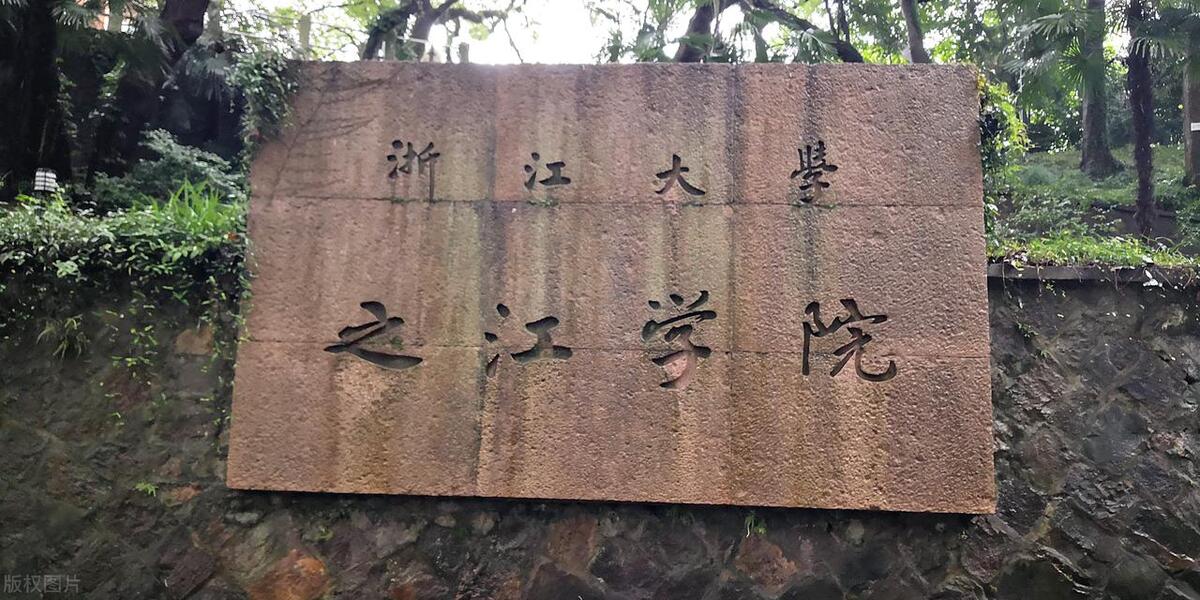 浙江大學
之江学院
版权图片